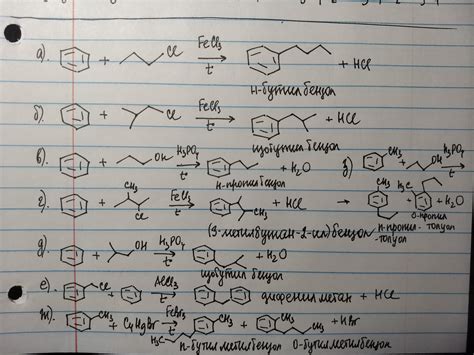 а). + Cl FeCl₃ t + HCl
н-бутилбензол
б). + Cl FeCl₃ t + HCl
изобутилбензол
в). + OH H₃PO₄ t + H₂O
н-пропилбензол
з) CH₃ + OH H₃PO₄ t
→ CH₃ + H₃C + H₂O
п-пропил-толуол
о-пропил-толуол
г). + CH₃ Cl FeCl₃ t CH₃ + HCl
(3-метилбутан-2-ил)бензол
д). + OH H₃PO₄ t + H₂O
изобутилбензол
е). Cl + AlCl₃ t дифенилметан + HCl
ж). CH₃ + C₄H₉Br FeBr₃ t H₃C CH₃ + CH₃ + HBr
п-бутилметилбензол о-бутилметилбензол